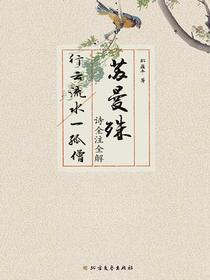 苏曼殊
诗全注全解
行云流水一孤僧
著
北方文艺出版社